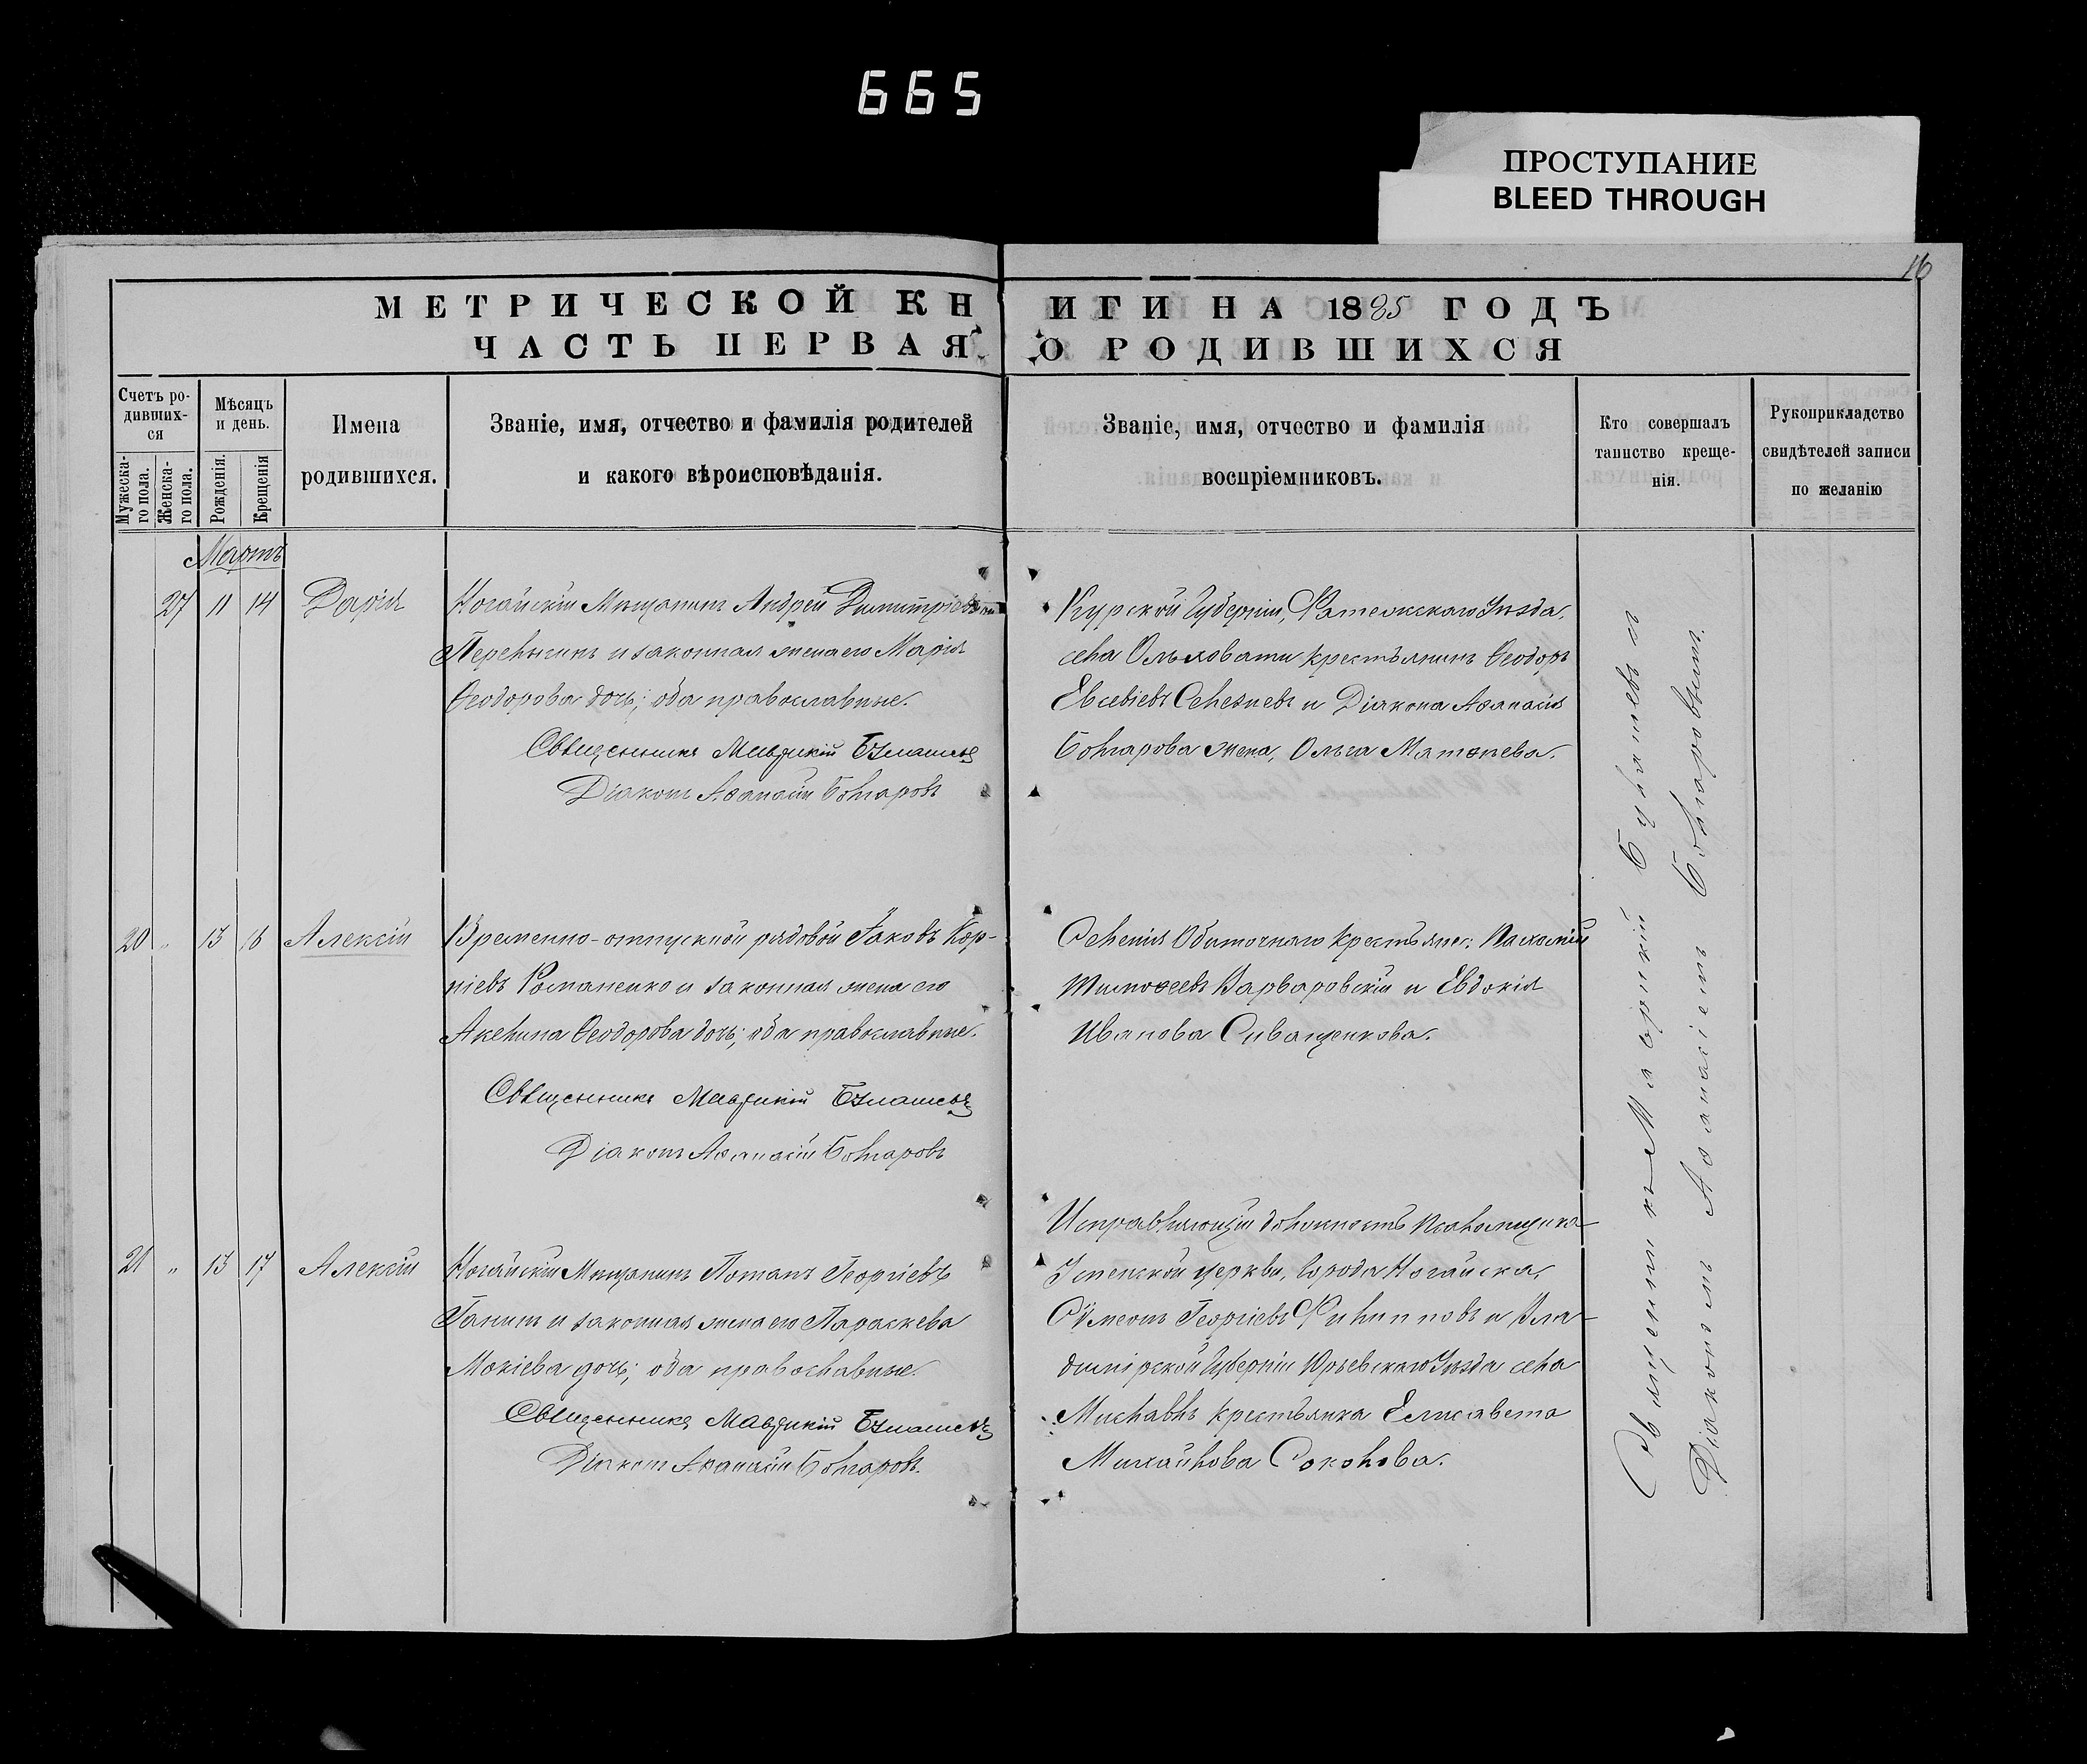 665
ПРОСТУПАНИЕ
BLEED THROUGH
16
МЕТРИЧЕСКОЙ КНИГИ НА 1885 ГОДЪ
ЧАСТЬ ПЕРВАЯ О РОДИВШИХСЯ
Счетъ ро-
дивших-
ся
Мужеска-
го пола.
Женска-
го пола.
Мѣсяцъ
и день.
Рожденія.
Крещенія
Имена
родившихся.
Званіе, имя, отчество и фамилія родителей
и какого вѣроисповѣданія.
Званіе, имя, отчество и фамилія
воспріемниковъ.
Кто совершалъ
таинство креще-
нія.
Рукоприкладство
свидѣтелей записи
по желанію
Мартъ
27 11 14 Дарія
Ногайскій Мѣщанинъ Андрей Димитріевъ
и законная жена его Марія
Ѳеодорова дочь; оба православные.
Священникъ Маврикій
Діаконъ Аѳанасій Болгаровъ
Курской Губерніи, Фатежскаго Уѣзда,
села Ольховати крестьянинъ Ѳеодоръ
Евсевіевъ Селезневъ и Діакона Аѳанасія
Болгарова жена, Ольга Матѳеева.
20 " 13 16 Алексій
Временно-отпускной рядовой Іаковъ Кор-
ніевъ Романенко и законная жена его
Акелина Ѳеодорова дочь; оба православные.
Священникъ Маврикій
Діаконъ Аѳанасій Болгаровъ
Селенія Обиточнаго крестьяне: Пахомій
Тимоѳеевъ Варваровскій и Евдокія
Иванова Сиващенкова.
21 " 13 17 Алексій
Ногайскій Мѣщанинъ Потапъ Георгіевъ
Ганинъ и законная жена его Параскева
Мокіева дочь; оба православные.
Священникъ Маврикій
Діаконъ Аѳанасій Болгаровъ.
Исправляющій должность Псаломщика
Успенской церкви, города Ногайска,
Сѵмеонъ Георгіевъ Филипповъ и Вла-
димірской Губерніи Юрьевскаго Уѣзда села
Миславль крестьянка Елисавета
Михайлова Соколова.
Священникъ Маврикій и
Діакономъ Аѳанасіемъ Болгаровымъ.